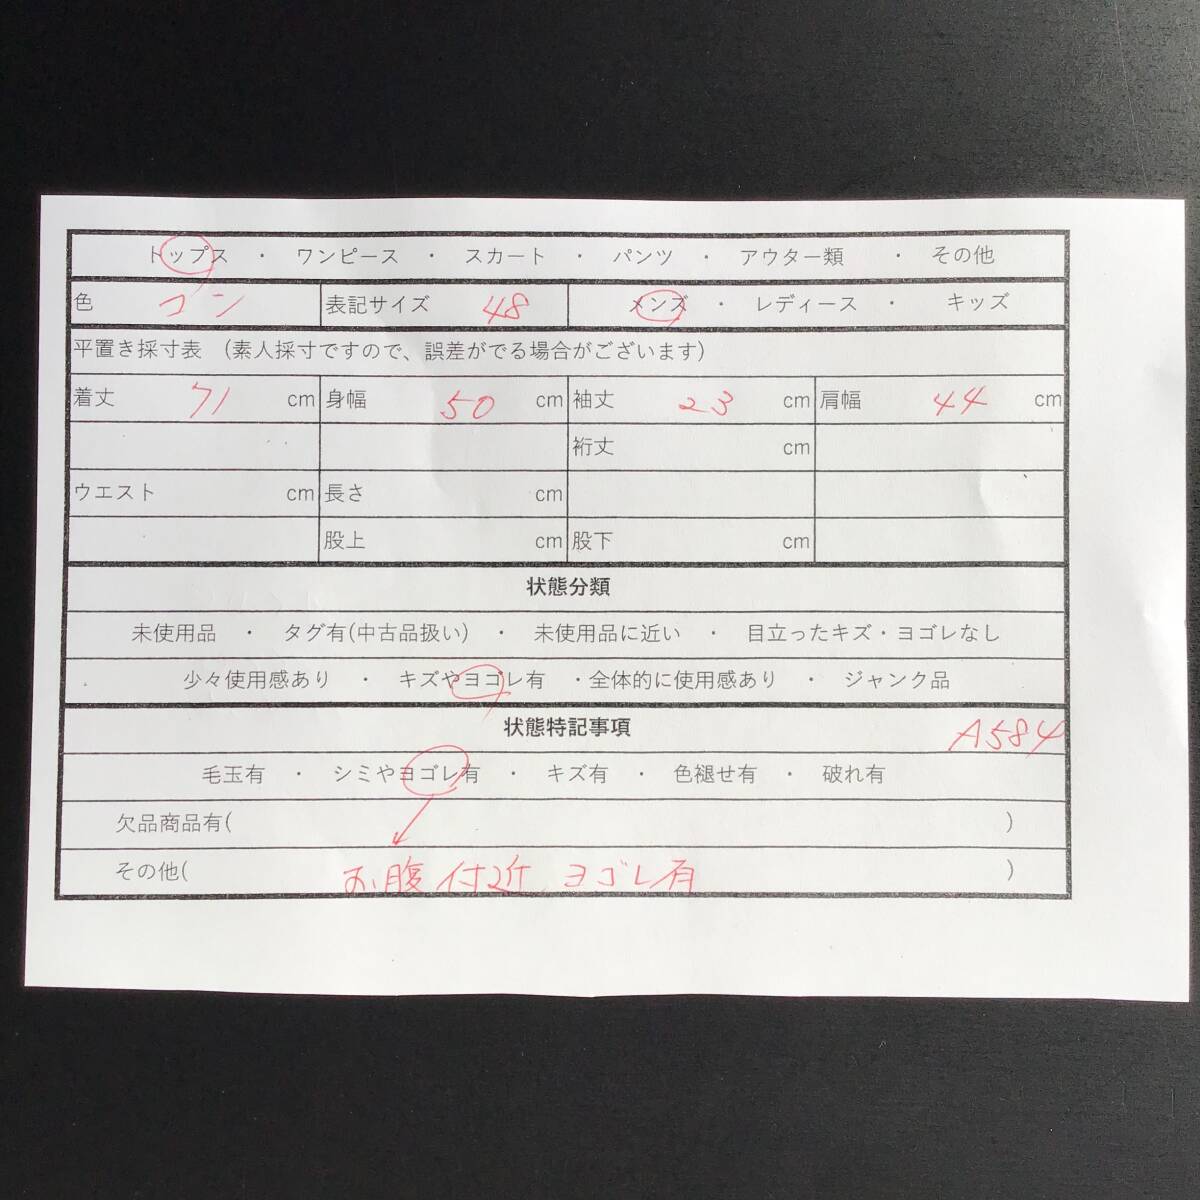 トップス ・ ワンピース ・ スカート ・ パンツ ・ アウター類 ・ その他
色 コン 表記サイズ 48 メンズ ・ レディース ・ キッズ
平置き採寸表 (素人採寸ですので、誤差がでる場合がございます)
着丈 71 cm 身幅 50 cm 袖丈 23 cm 肩幅 44 cm
裄丈 cm
ウエスト cm 長さ cm
股上 cm 股下 cm
状態分類
未使用品 ・ タグ有(中古品扱い) ・ 未使用品に近い ・ 目立ったキズ・ヨゴレなし
少々使用感あり ・ キズやヨゴレ有 ・全体的に使用感あり ・ ジャンク品
状態特記事項 A584
毛玉有 ・ シミやヨゴレ有 ・ キズ有 ・ 色褪せ有 ・ 破れ有
欠品商品有( )
その他( お腹付近 ヨゴレ有 )